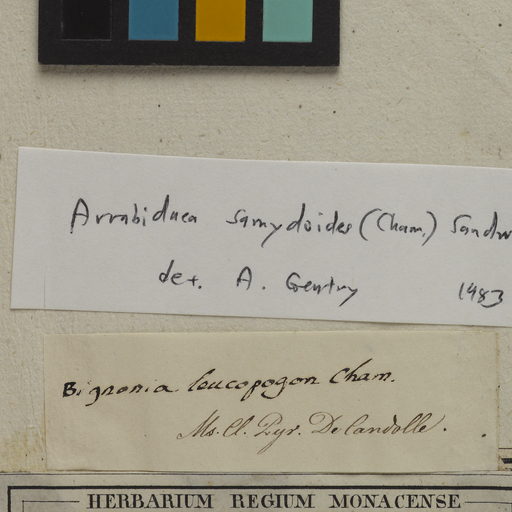 Arrabidaea samydoides (Cham.) Sandw
det. A. Gentry 1983
Bignonia leucopogon Cham.
Ms. Cl. Pyr. DeCandolle.
HERBARIUM REGIUM MONACENSE